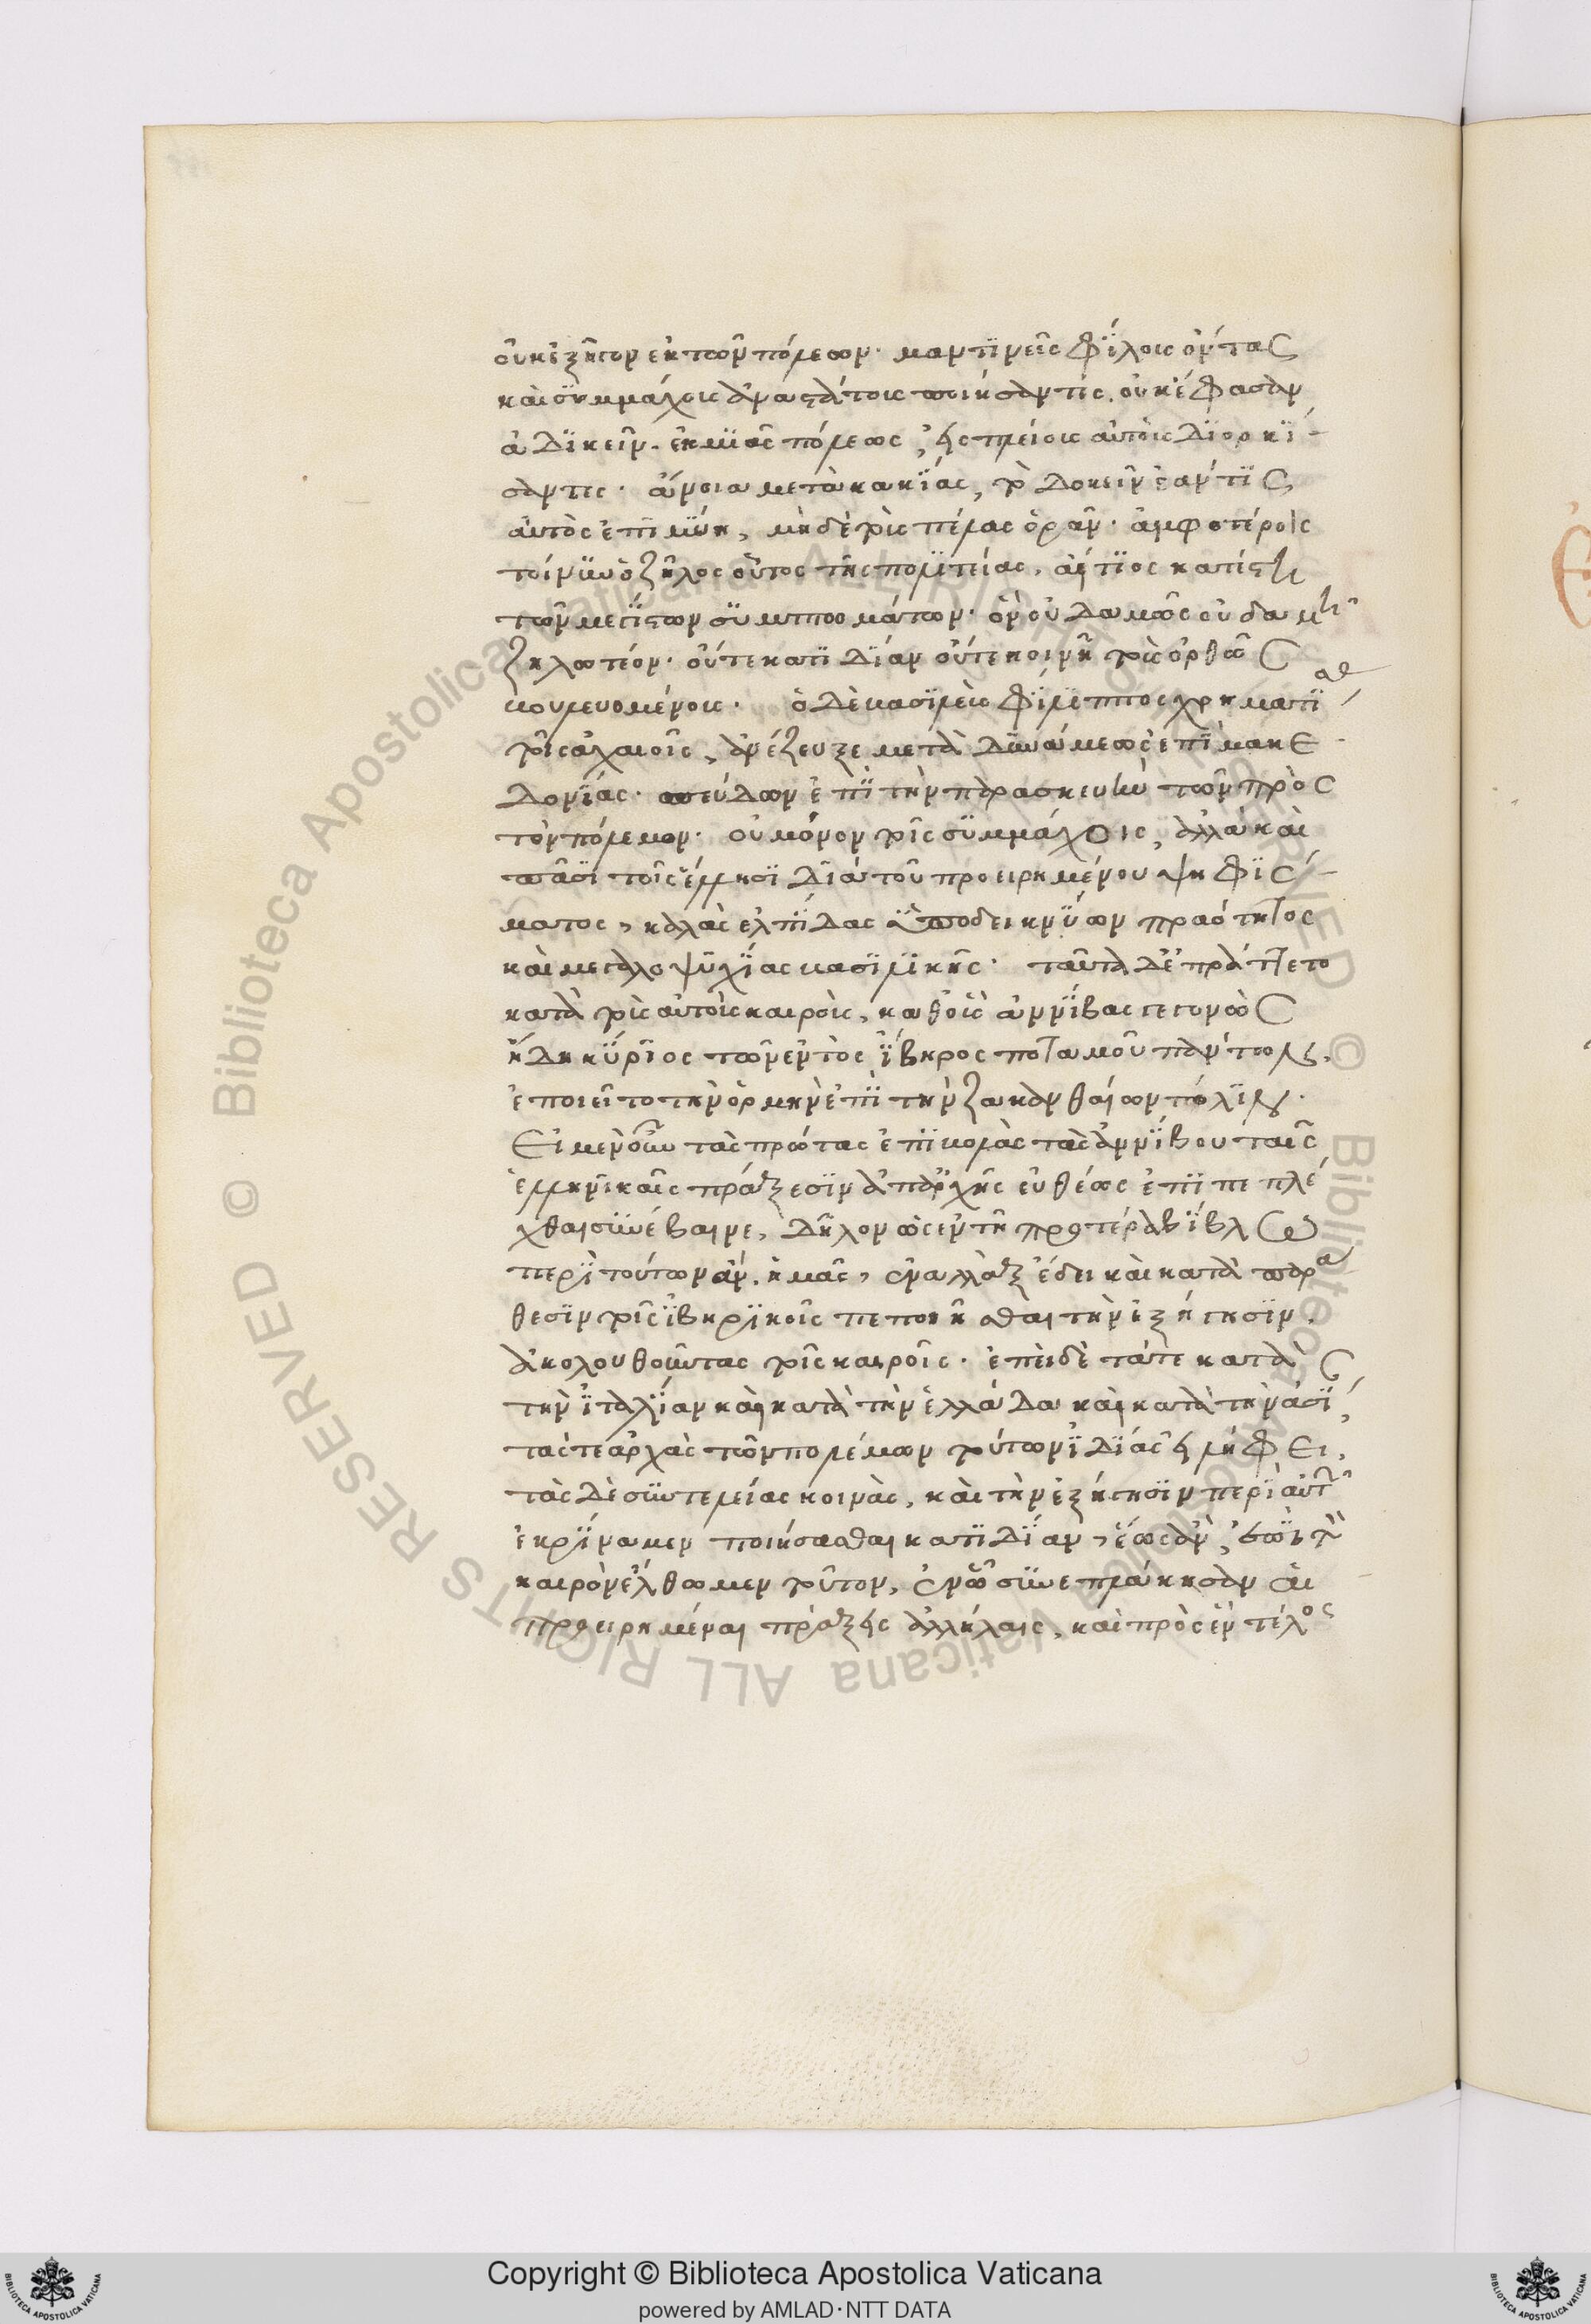 οὐκ ἐξῆγον ἐκ τῶν πόλεων· μαντϊνεῖς φΐλους ὄντας
καὶ συμμάχους ἀναστάτους ποιήσαντες. οὐκ ἔφασαν
ἀδϊκεῖν. ἐκ μϊᾶς πόλεως, εἰς πλείους αὐτοὺς δϊορκΐ-
σαντες· ἄνοια μετὰ κακΐας, τὸ δοκεῖν ἐάν τϊς
αὐτὸς ἐπϊμύη, μηδὲ τοὺς πέλας ὁρᾶν· ἀμφοτέροις
τοίνυν ὁ ζῆλος οὗτος τῆς πολιτείας, αἴτϊος κατέστη
τῶν μεγΐστων συμπτωμάτων· ὃν οὐδαμῶς οὐδαμῆ
ζηλωτέον· οὔτε κατϊδΐαν οὔτε κοινῆ τοὺς ὀρθῶς
βουλευομένους· ὁ δὲ βασϊλεὺς φΐλϊππος χρηματΐσας
τοῖς ἀχαιοῖς, ἀνέζευξε μετὰ δυνάμεως ἐπϊ μακε
δονΐας· σπεύδων ἐπϊ τὴν παρασκευὴν τῶν πρὸς
τὸν πόλεμον· οὐ μόνον τοῖς συμμάχοις, ἀλλὰ καὶ
πᾶσϊ τοῖς ἕλλησϊ δϊὰ τοῦ προειρημένου ψηφΐσ-
ματος, καλὰς ἐλπΐδας ὑποδεικνύων πραότητος
καὶ μεγαλοψυχΐας βασϊλϊκῆς· ταῦτα δ' ἐπράττετο
κατὰ τοὺς αὐτοὺς καιροὺς, καθ' οὓς ἀννΐβας γεγονὼς
ἤδη κύρϊος τῶν ἐντὸς ἴβηρος ποταμοῦ πάντων,
ἐποιεῖτο τὴν ὁρμὴν ἐπϊ τὴν ζακανθαίων πόλϊν·
Εἰ μὲν οὖν τὰς πρώτας ἐπϊβολὰς τὰς ἀννΐβου ταῖς
ἑλληνϊκαῖς πράξεσϊν ἀπαρχῆς εὐθέως ἐπϊπεπλέ
χθαι συνέβαινε, δῆλον ὡς ἐν τῆ προτέρα βΐβλω
περὶ τούτων ἂν ἡμᾶς, ἐναλλὰξ ἔδει καὶ κατὰ παρα
θεσϊν τοῖς ἰβηρϊκοῖς πεποιῆσθαι τὴν ἐξήγησϊν,
ἀκολουθοῦντας τοῖς καιροῖς· ἐπεὶ δὲ τά τε κατὰ
τὴν ἰταλΐαν καὶ κατὰ τὴν ἑλλάδα καὶ κατὰ τὴν ἀσΐ,
τὰς τε ἀρχὰς τῶν πολέμων τούτων ἰδΐας εἰλήφει,
τὰς δὲ συντελείας κοινὰς, καὶ τὴν ἐξήγησϊν περὶ αὐτῶν
ἐκρΐναμεν ποιήσασθαι κατϊδΐαν, ἕως ἂν, ἐπὶ τὸν
καιρὸν ἔλθωμεν τοῦτον, ἐν ᾧ συνεπλάκησαν αἱ
προειρημέναι πράξεις ἀλλήλαις, καὶ πρὸς ἓν τέλος